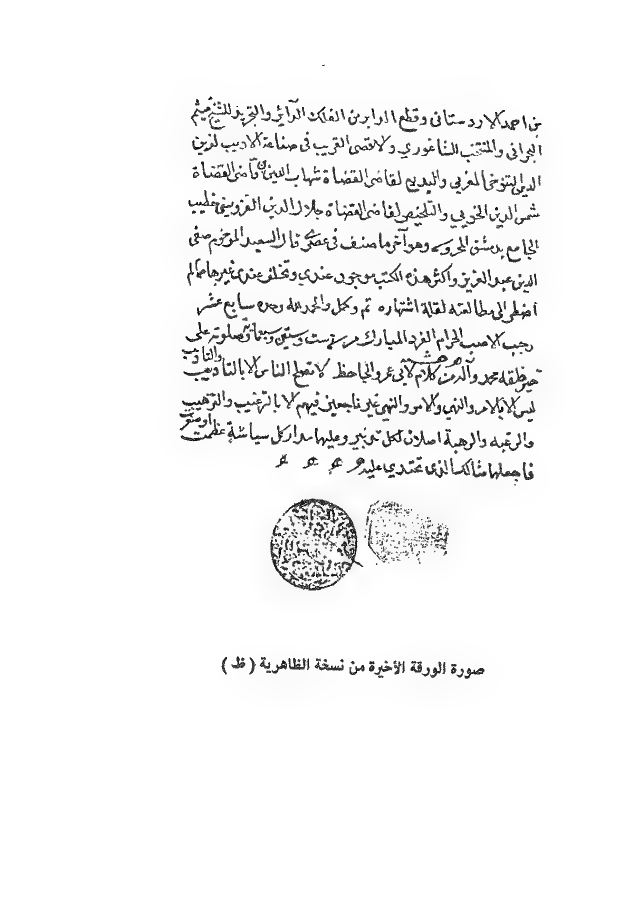 بن احمد الاردستانى وقطع الدابر من الفلك الدائر والتجريد للشيخ ميثم
البحرانى والمنتخب للشاغوري والاقصى القريب فى صناعة الاديب لزين
الدين التنوخى المغربى والبديع لقاضى القضاة شهاب الدين بن قاضى القضاة
شمس الدين الخويي والتلخيص لقاضى القضاة جلال الدين القزوينى خطيب
الجامع بدمشق المحروسه وهو آخر ما صنف فى عصرى قال السعيد المرحوم صفى
الدين عبد العزيز واكثر هذه الكتب موجودة عندي وتخلف عندى غيرها مما لم
اضطر الى مطالعته لقلة اشتهاره تم وكمل والحمد لله وحده سابع عشر
رجب الاصب الحرام الفرد المبارك من سنة ست وستين وصلوته على
خير خلقه محمد واله من كلام لابى عمرو الجاحظ لا تصلح الناس الا بالتاديب
ليس الا بالامر والنهي والامر والنهي غير ناجعين فيهم الا بالترغيب والترهيب
والرغبه والرهبة اصلان لكل تدبير وعليها مدار كل سياسة عظمت او صغرت
فاجعلها مثالك الذى تحتذي عليه
صورة الورقة الأخيرة من نسخة الظاهرية ( ظ )